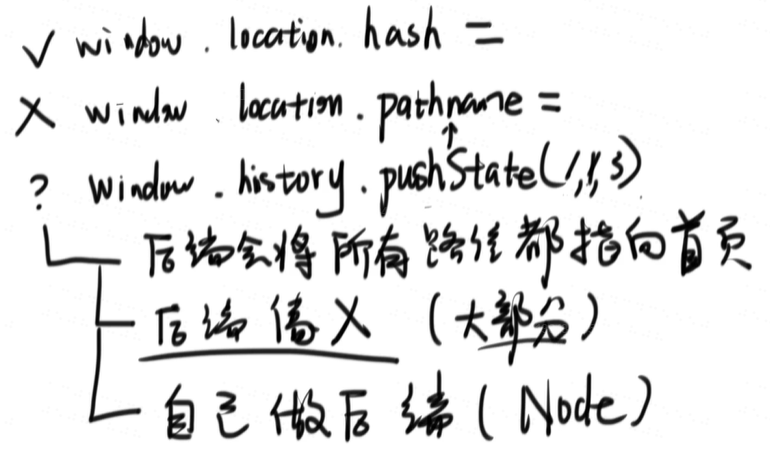 ✓ window.location.hash =
✗ window.location.pathname =
? window.history.pushState(1,1,3)
后端会将所有路径都指向首页
后端傻X (大部分)
自己做后端 (Node)